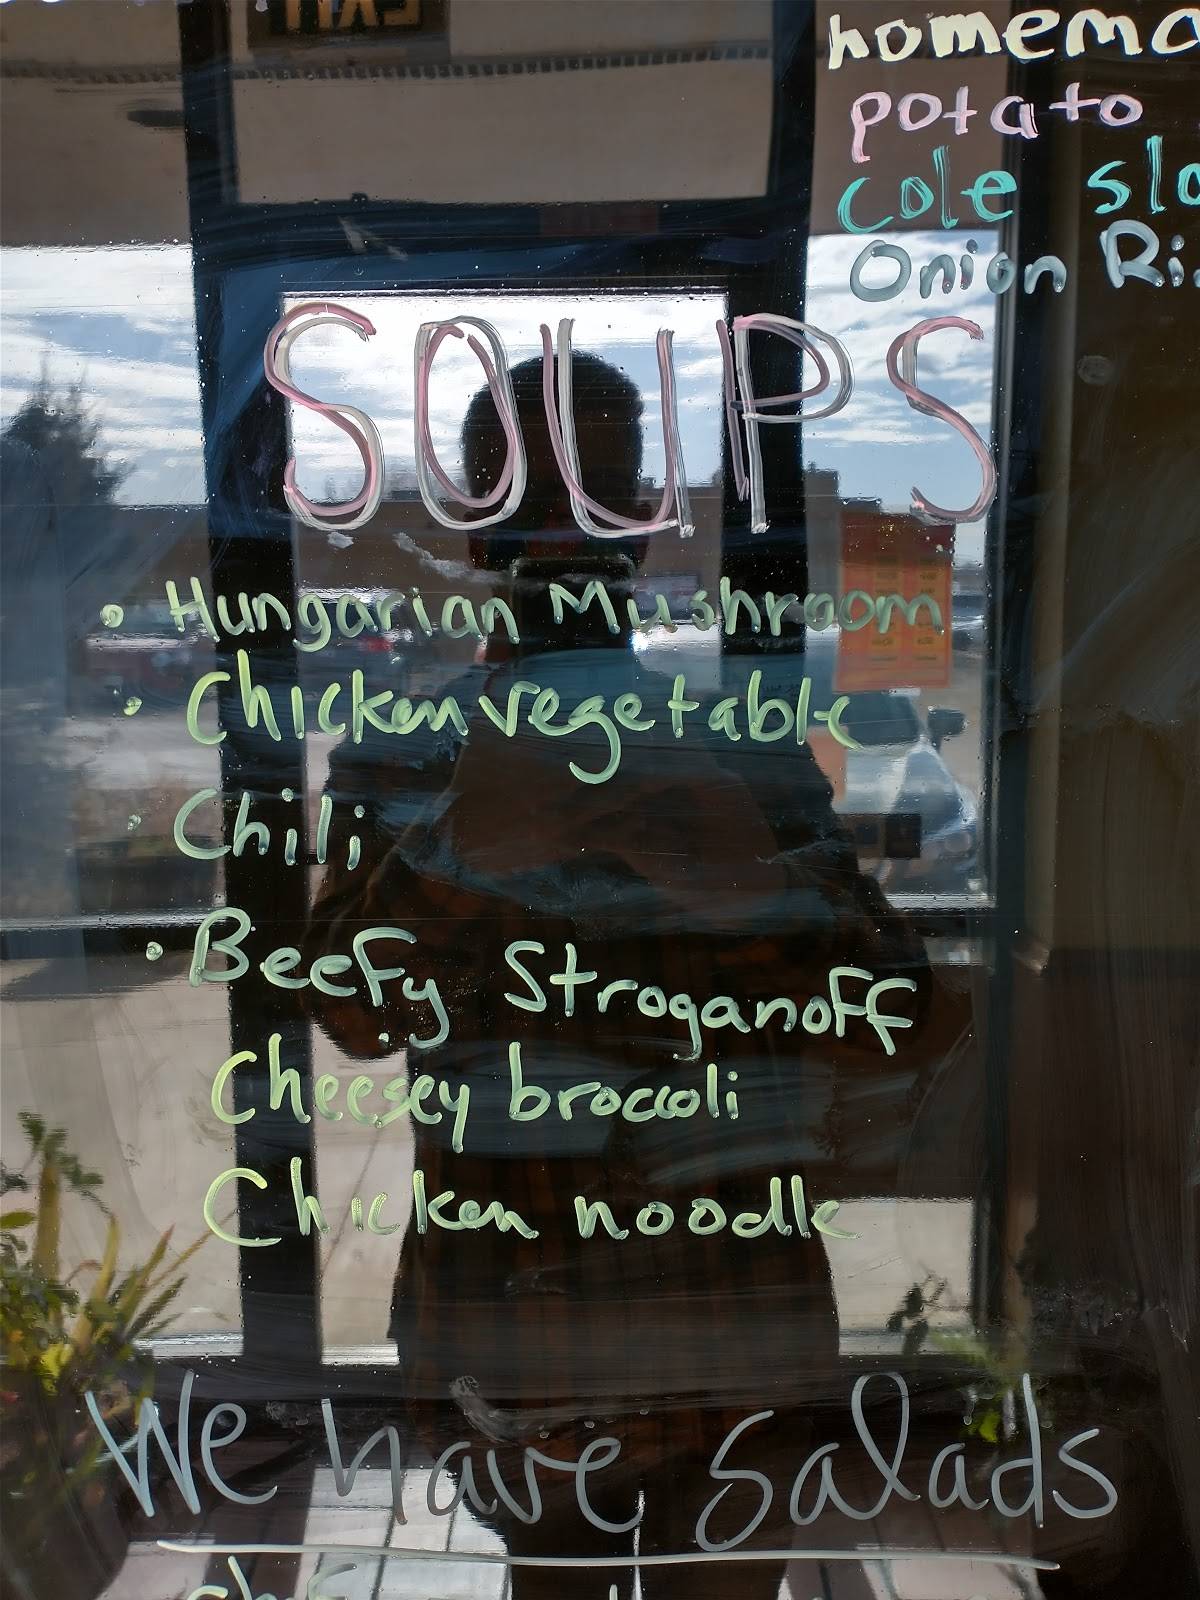 homema
potato
cole sla
Onion Ri
SOUPS
• Hungarian Mushroom
• Chicken vegetable
• Chili
• Beefy Stroganoff
Cheesey broccoli
Chicken noodle
We have Salads